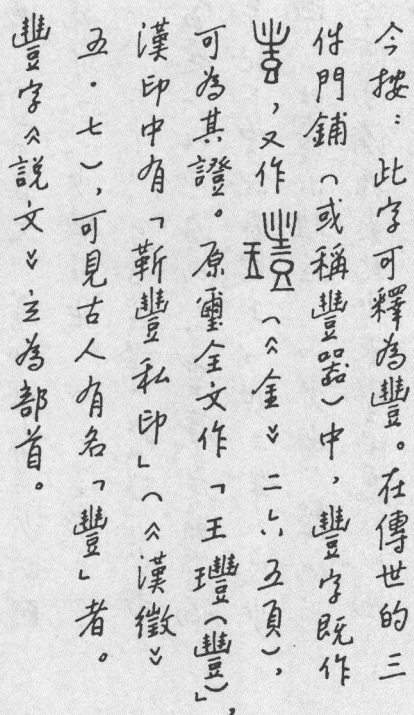 今按：此字可釋為豐。在傳世的三
件門鋪（或稱豐器）中，豐字既作
，又作（《金》二六五頁），
可為其證。原璽全文作「王（豐）」，
漢印中有「靳豐私印」（《漢徵》
五·七），可見古人有名「豐」者。
豐字《說文》立為部首。